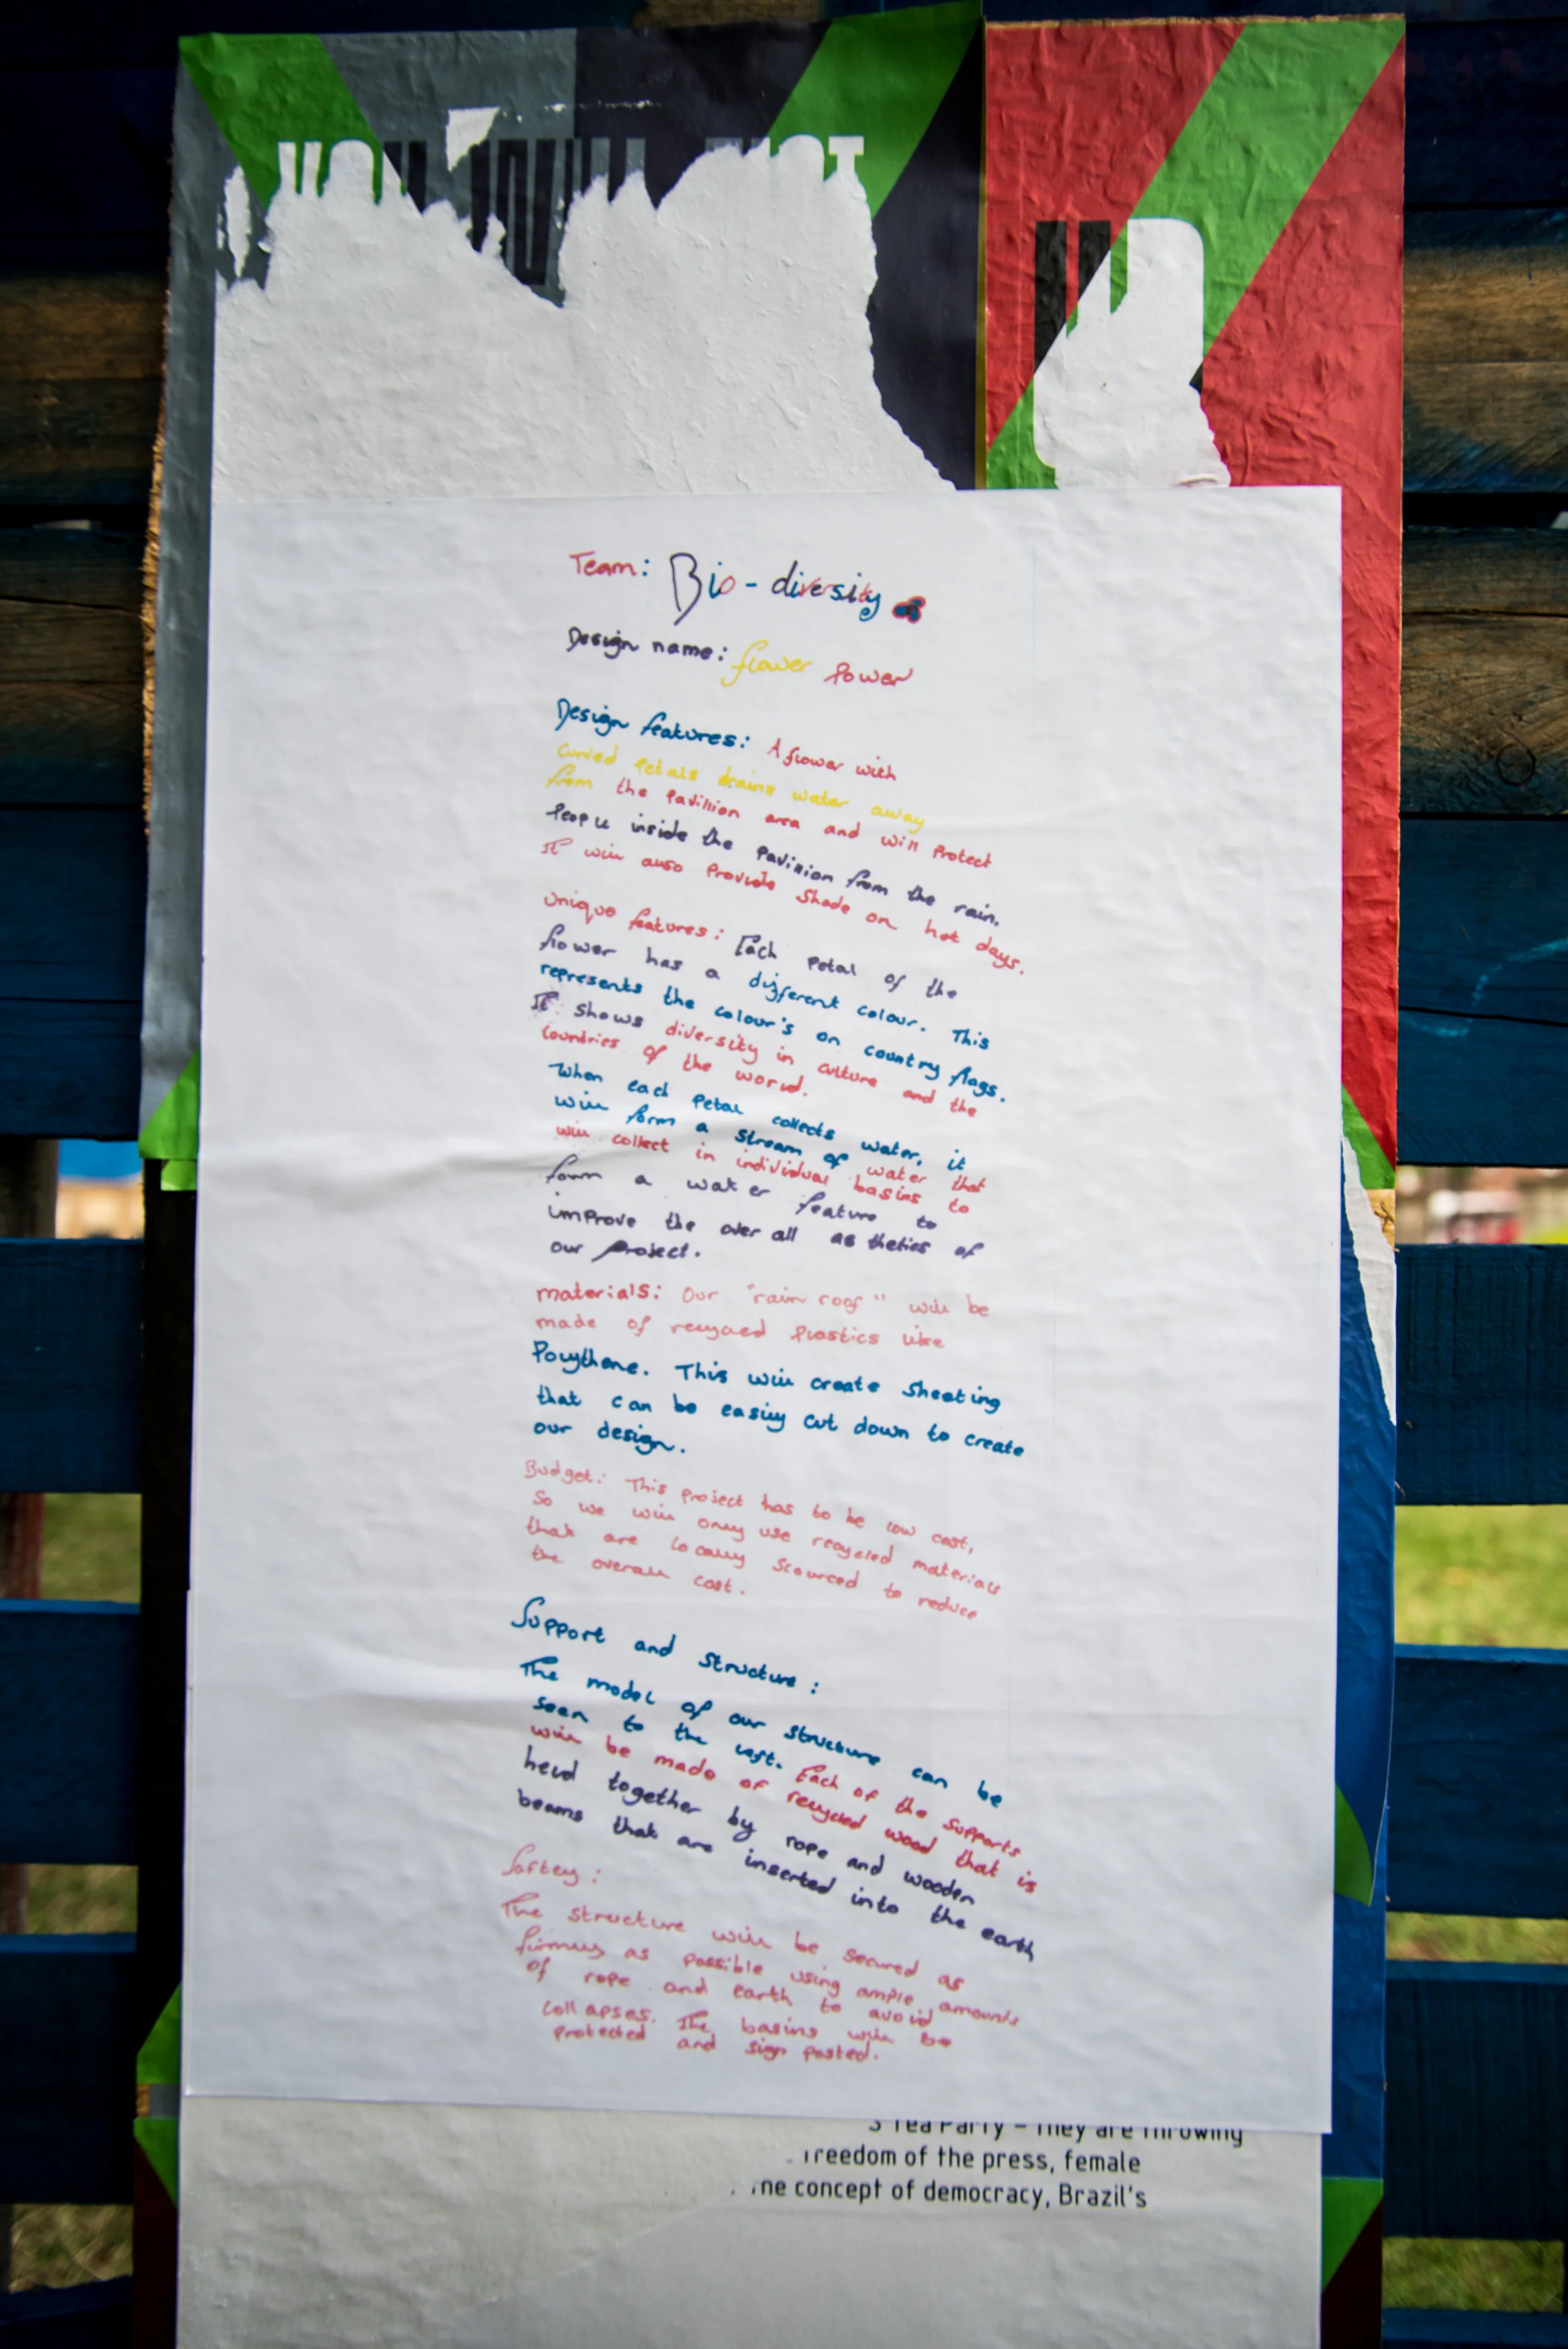 Team: Bio-diversity
Design name: flower Power
Design features: A flower with
curved Petals drains water away
from the Pavillion area and will Protect
People inside the Pavillion from the rain.
It will also Provide shade on hot days.
Unique features: Each Petal of the
flower has a different colour. This
represents the colour's on country flags.
It shows diversity in culture and the
countries of the world.
When each Petal collects water, it
will form a stream of water that
will collect in individual basins to
form a water feature to
improve the over all asthetics of
our project.
materials: Our "rain roof" will be
made of recycled Plastics like
Polythene. This will create sheeting
that can be easily cut down to create
our design.
Budget: This project has to be low cost,
so we will only use recycled materials
that are locally scourced to reduce
the overall cost.
Support and structure:
The model of our structure can be
seen to the left. Each of the supports
will be made of recycled wood that is
held together by rope and wooden
beams that are inserted into the earth
Saftey:
The structure will be secured as
firmly as possible using ample amounts
of rope and earth to avoid
collapses. The basins will be
protected and sign posted.
Tea Party – They are throwing
freedom of the press, female
concept of democracy, Brazil's